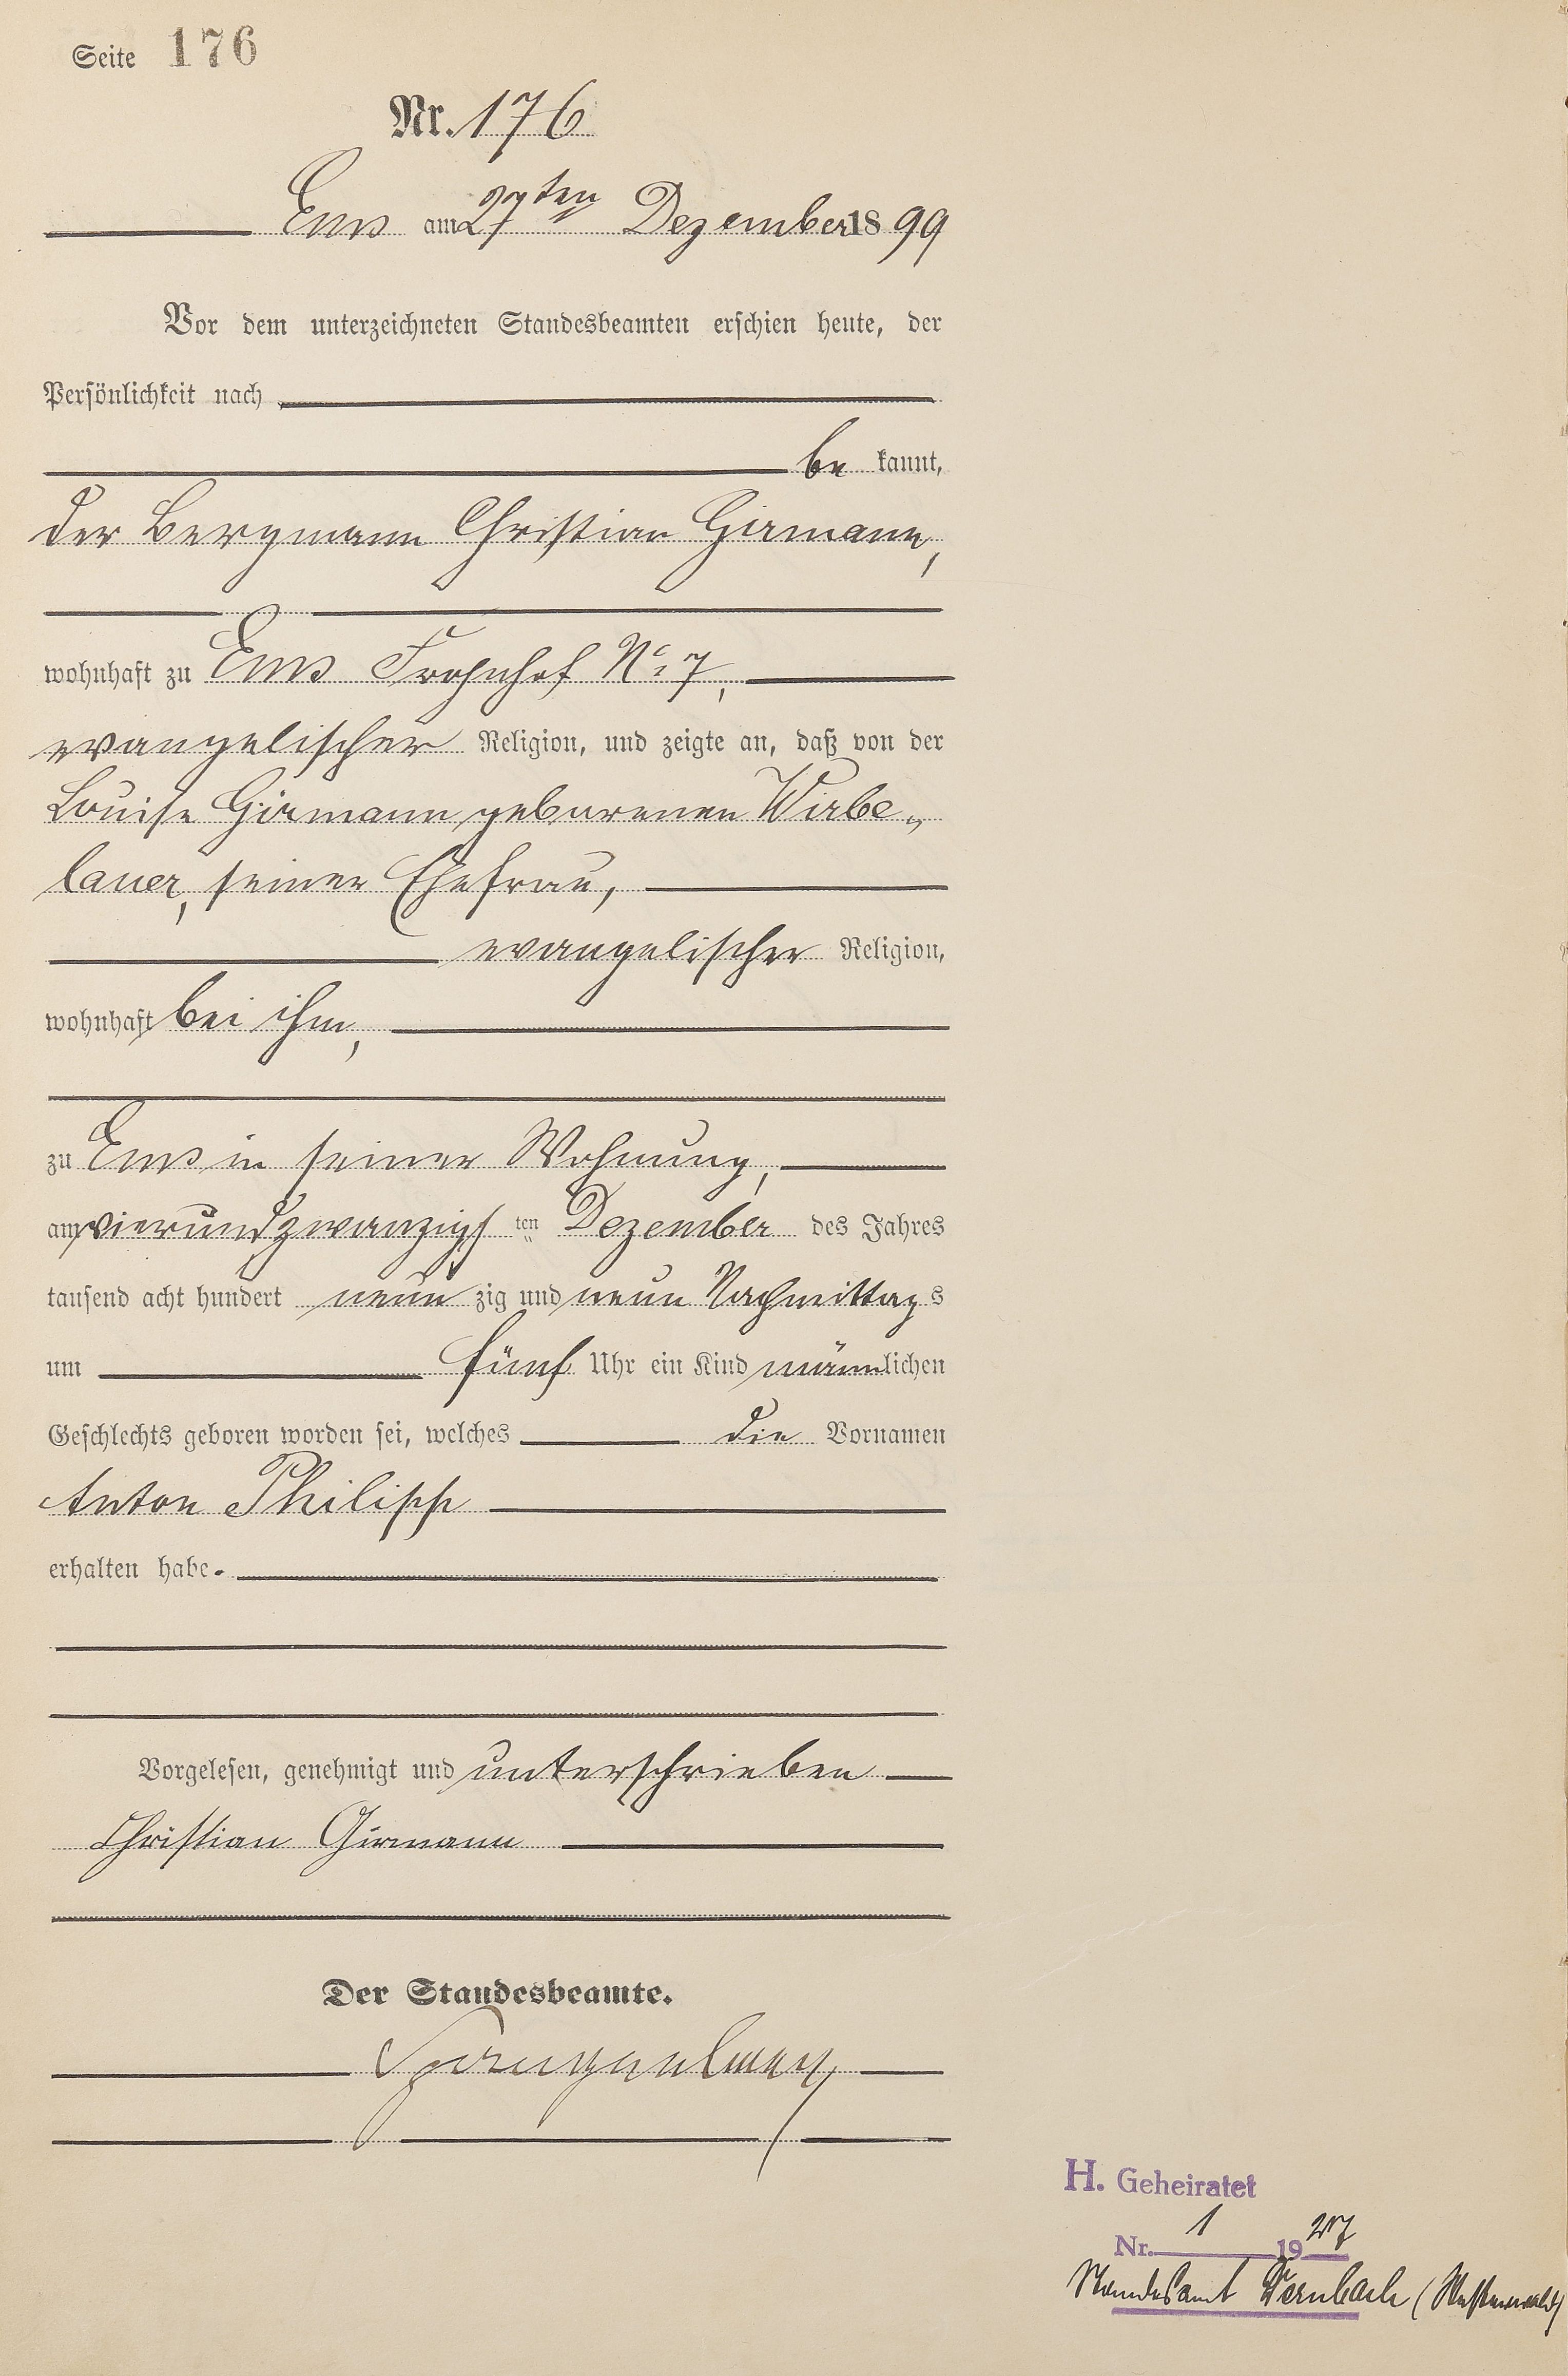 Seite 176
Nr. 176
Ems am 27ten Dezember 1899
Vor dem unterzeichneten Standesbeamten erschien heute, der
Persönlichkeit nach
be kannt,
der Bergmann Christian Girmann,
wohnhaft zu Ems Frohnhof No. 7,
evangelischer Religion, und zeigte an, daß von der
Louise Girmann geborenen Wirbe„
lauer, seiner Ehefrau,
evangelischer Religion,
wohnhaft bei ihm,
zu Ems in seiner Wohnung,
am vierundzwanzigs ten Dezember des Jahres
tausend acht hundert neun zig und neun Nachmittag s
um fünf Uhr ein Kind männlichen
Geschlechts geboren worden sei, welches die Vornamen
Anton Philipp
erhalten habe.
Vorgelesen, genehmigt und unterschrieben
Christian Girmann
Der Standesbeamte.
H. Geheiratet
Nr. 1 1927
Standesamt (Westerwald)